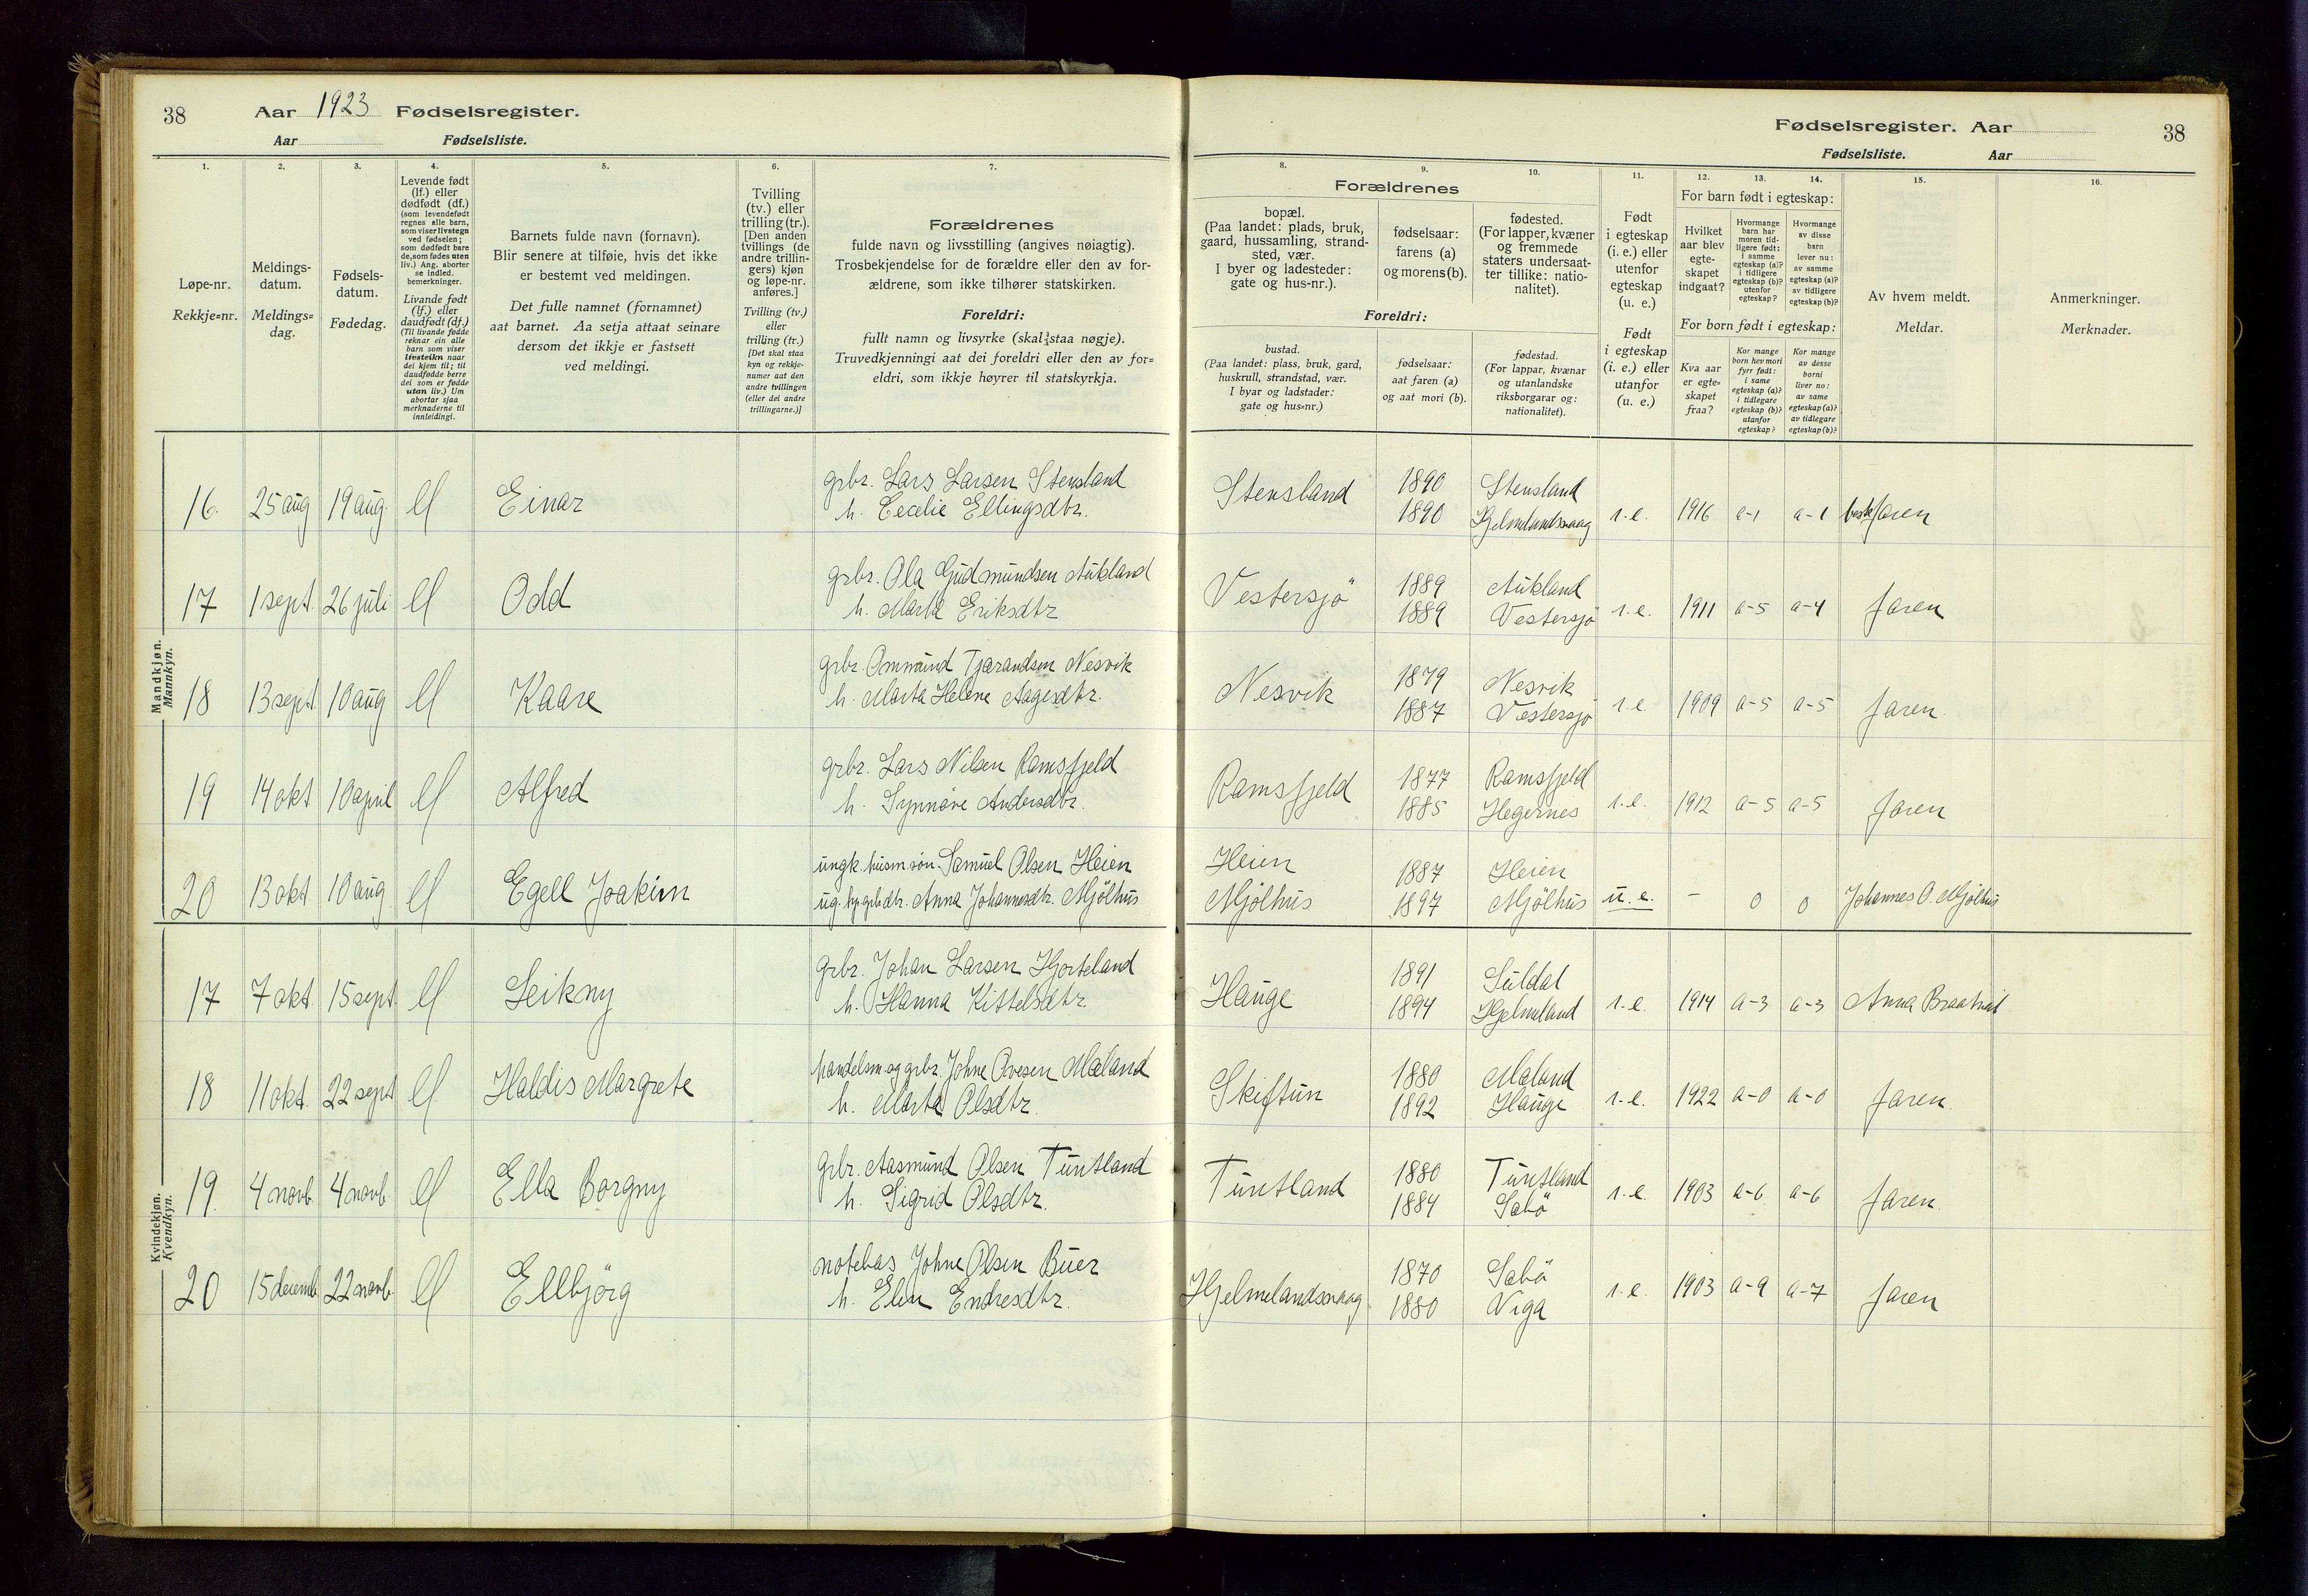 38 Aar 1923 Fødselsregister.
Aar Fødselsliste.
Fødselsregister. Aar 38
Fødselsliste. Aar
1. 2. 3. 4. 5. 6. 7. 8. 9. 10. 11. 12. 13. 14. 15. 16.
Løpe-nr.
Rekkje=nr.
Meldings-
datum.
Meldings=
dag.
Fødsels-
datum.
Fødedag.
Levende født
(lf.) eller
dødfødt (df.)
(som levendefødt
regnes alle barn,
som viser livstegn
ved fødselen;
som dødfødt bare
de, som fødes uten
liv.) Ang. aborter
se indled.
bemerkninger.
Livande født
(lf.) eller
daudfødt (df.)
(Til livande fødde
reknar ein alle
barn som viser
livsteikn naar
dei kjem til; til
daudfødde berre
dei som er fødde
utan liv.) Um
abortar sjaa
merknaderne til
innleidingi.
Barnets fulde navn (fornavn).
Blir senere at tilføie, hvis det ikke
er bestemt ved meldingen.
Det fulle namnet (fornamnet)
aat barnet. Aa setja attaat seinare
dersom det ikkje er fastsett
ved meldingi.
Tvilling
(tv.) eller
trilling (tr.).
[Den anden
tvillings (de
andre trillin-
gers) kjøn
og løpe-nr.
anføres.]
Tvilling (tv.)
eller
trilling (tr.)
[Det skal staa
kyn og rekkje-
numer aat den
andre tvillingen
(eller dei andre
trillingarne.)]
Forældrenes
fulde navn og livsstilling (angives nøiagtig).
Trosbekjendelse for de forældre eller den av for-
ældrene, som ikke tilhører statskirken.
Foreldri:
fullt namn og livsyrke (skal staa nøgje).
Truvedkjenningi aat dei foreldri eller den av for=
eldri, som ikkje høyrer til statskyrkja.
Forældrenes
bopæl.
(Paa landet: plads, bruk,
gaard, hussamling, strand-
sted, vær.
I byer og ladesteder:
gate og hus-nr.).
fødselsaar:
farens (a)
og morens (b).
fødested.
(For lapper, kvæner
og fremmede
staters undersaat-
ter tillike: natio-
nalitet).
Foreldri:
bustad.
(Paa landet: plass, bruk, gard,
huskrull, strandstad, vær.
I byar og ladstader:
gate og hus=nr.)
fødselsaar:
aat faren (a)
og aat mori (b).
fødestad.
(For lappar, kvænar
og utanlandske
riksborgarar og:
nationalitet).
Født
i egteskap
(i. e.) eller
utenfor
egteskap
(u. e.)
Født
i egteskap
(i. e.) eller
utanfor
egteskap
(u. e.)
For barn født i egteskap:
Hvilket
aar blev
egte-
skapet
indgaat?
Hvormange
barn har
moren tid-
ligere født:
i samme
egteskap (a)?
i tidligere
egteskap (b)?
utenfor
egteskap?
Hvormange
av disse
barn
lever nu:
av samme
egteskap (a)?
av tidligere
egteskap (b)?
For born født i egteskap:
Kva aar
er egte=
skapet
fraa?
Kor mange
born hev mori
fyrr født:
i same
egteskap (a)?
i tidlegare
egteskap (b)?
utanfor
egteskap?
Kor mange
av desse
borni
liver no:
av same
egteskap (a)?
av tidlegare
egteskap (b)?
Av hvem meldt.
Meldar.
Anmerkninger.
Merknader.
Mandkjøn.
Mannkyn.
16. 25 aug 19 aug. lf Einar grbr. Lars Larsen Stensland Stensland 1890 Stensland
h. Cecelie Ellingsdtr. 1890 Hjelmelandsvaag i.e. 1916 a-1 a-1 bestefaren
17 1 sept. 26 juli lf Odd grbr. Ola Gudmundsen Aukland Vestersjö 1889 Aukland
h. Marta Eriksdtr 1889 Vestersjö i.e. 1911 a-5 a-4 faren
18 13 sept. 10 aug lf Kaare grbr. Ommund Tjærandsen Nesvik Nesvik 1879 Nesvik
h. Marta Helene Aagesdtr. 1887 Vestersjö i.e. 1909 a-5 a-5 faren.
19 14 okt 10 april lf Alfred grbr. Lars Nilsen Ramsfjeld Ramsfjeld 1877 Ramsfjeld
h. Synnöve Andersdtr. 1885 Hegernes i.e. 1912 a-5 a-5 faren
20 13 okt. 10 aug lf Egell Joakim ungk. husm.sön. Samuel Olsen Heien Heien 1887 Heien
Anna Johannesdtr. Mjölhus Mjölhus 1897 Mjölhus u.e. - 0 0 Johannes O. Mjölhus
Kvindekjøn.
Kvendkyn.
17 7 okt. 15 sept. lf Leikny grbr. Johan Larsen Hjorteland Hauge 1891 Suldal
h. Hanna Kittelsdtr. 1894 Hjelmeland i.e. 1914 a-3 a-3 Anna Braatveit
18 11 okt. 22 sept lf Haldis Margrete handelsm. og grbr. Johne Ovesen Mæland Skiftun 1880 Mæland
h. Marta Olsdtr. 1892 Hauge i.e. 1922 a-0 a-0 faren.
19. 4 novb. 4 novb. lf Ella Borgny grbr. Aasmund Olsen Tuntland Tuntland 1880 Tuntland
h. Sigrid Olsdtr. 1884 Sæbö i.e. 1903 a-6 a-6 faren.
20 15 decemb. 22 novb. lf Ellbjörg notebas Johne Olsen Buer Hjelmelandsvaag 1870 Sæbö
h. Elen Endresdtr. 1880 Viga i.e. 1903 a-9 a-7 faren